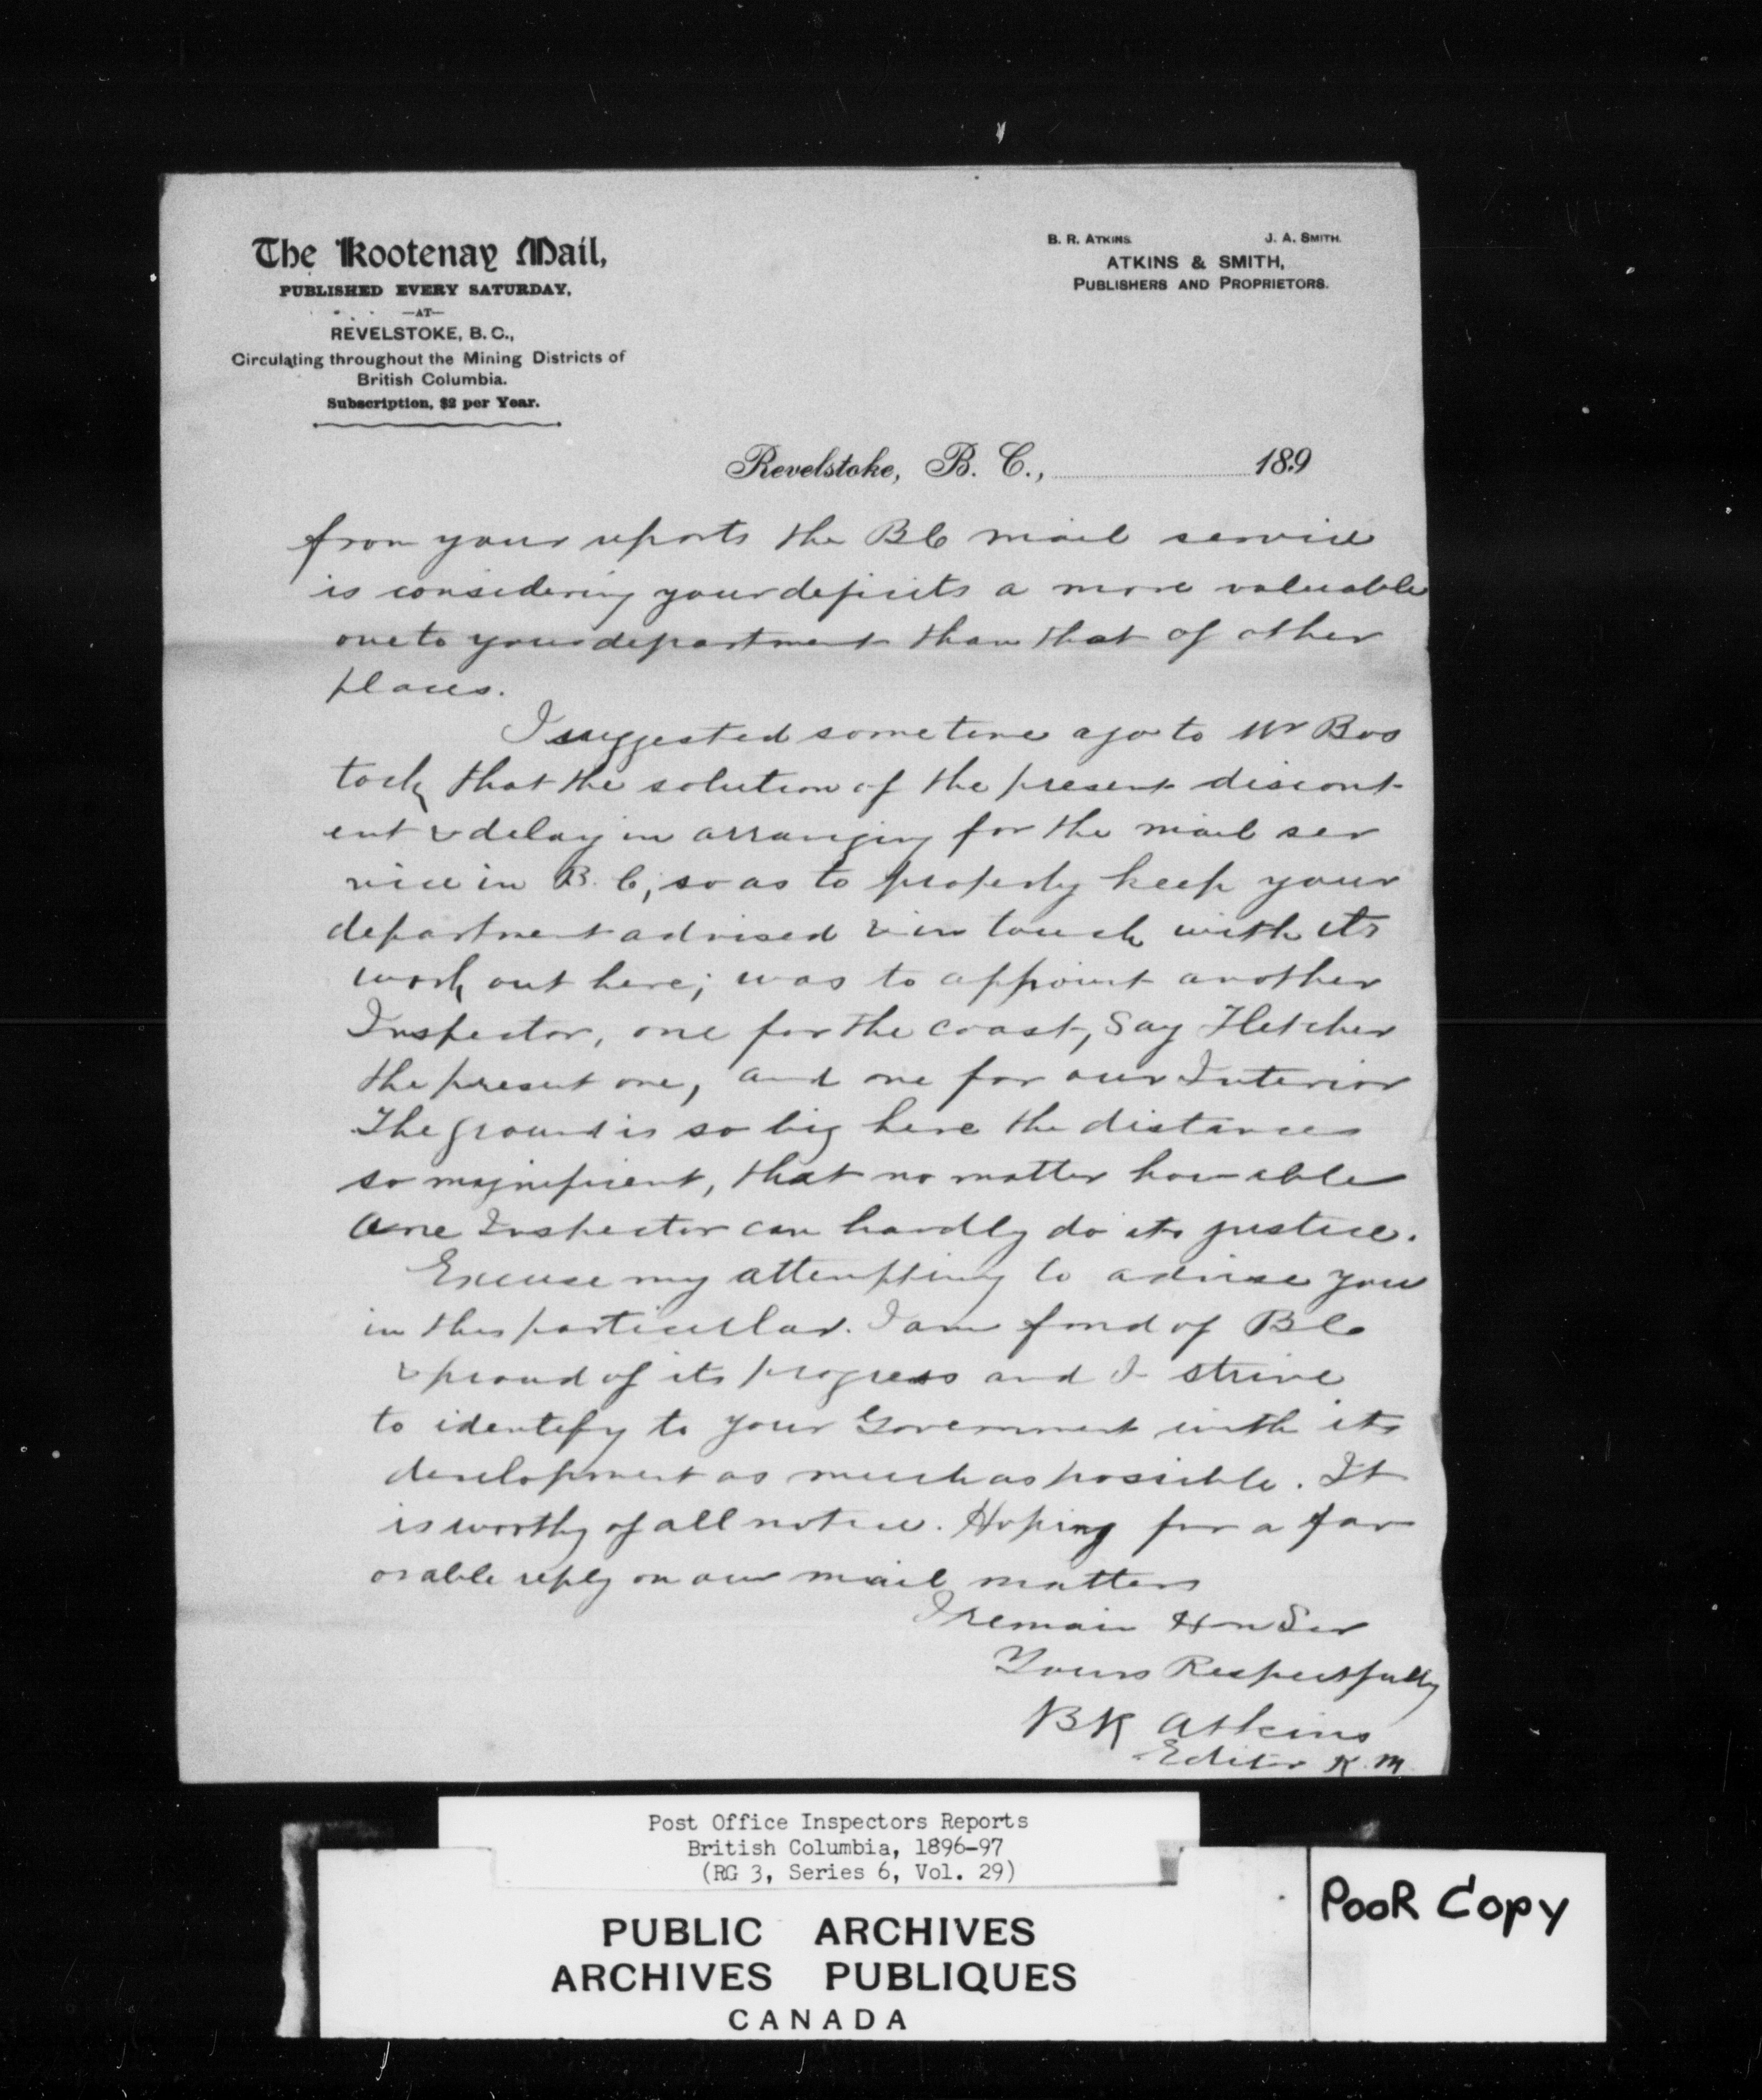 The Kootenay Mail,
PUBLISHED EVERY SATURDAY,
—AT—
REVELSTOKE, B. C.,
Circulating throughout the Mining Districts of
British Columbia.
Subscription, $2 per Year.
B. R. ATKINS. J. A. SMITH.
ATKINS & SMITH,
PUBLISHERS AND PROPRIETORS.
Revelstoke, B. C., 189
from your reports the BC mail service
is considering your deficits a more valuable
one to your department than that of other
places.
I suggested sometime ago to Mr Bos
tock that the solution of the present discont-
ent & delay in arranging for the mail ser
vice in B. C; so as to properly keep your
department advised & in touch with its
work out here; was to appoint another
Inspector, one for the coast, Say Fletcher
the present one, and one for our Interior
The ground is so big here the distances
so magnificent, that no matter how able
one Inspector can hardly do its justice.
Excuse my attempting to advise you
in this particular. I am fond of BC
& proud of its progress and I strive
to identify to your Government with its
development as much as possible. It
is worthy of all notice. Hoping for a fav
orable reply on our mail matters
I remain Hon Sir
Yours Respectfully
BR Atkins
Editor K. M.
Post Office Inspectors Reports
British Columbia, 1896-97
(RG 3, Series 6, Vol. 29)
PUBLIC ARCHIVES
ARCHIVES PUBLIQUES
CANADA
POOR COPY